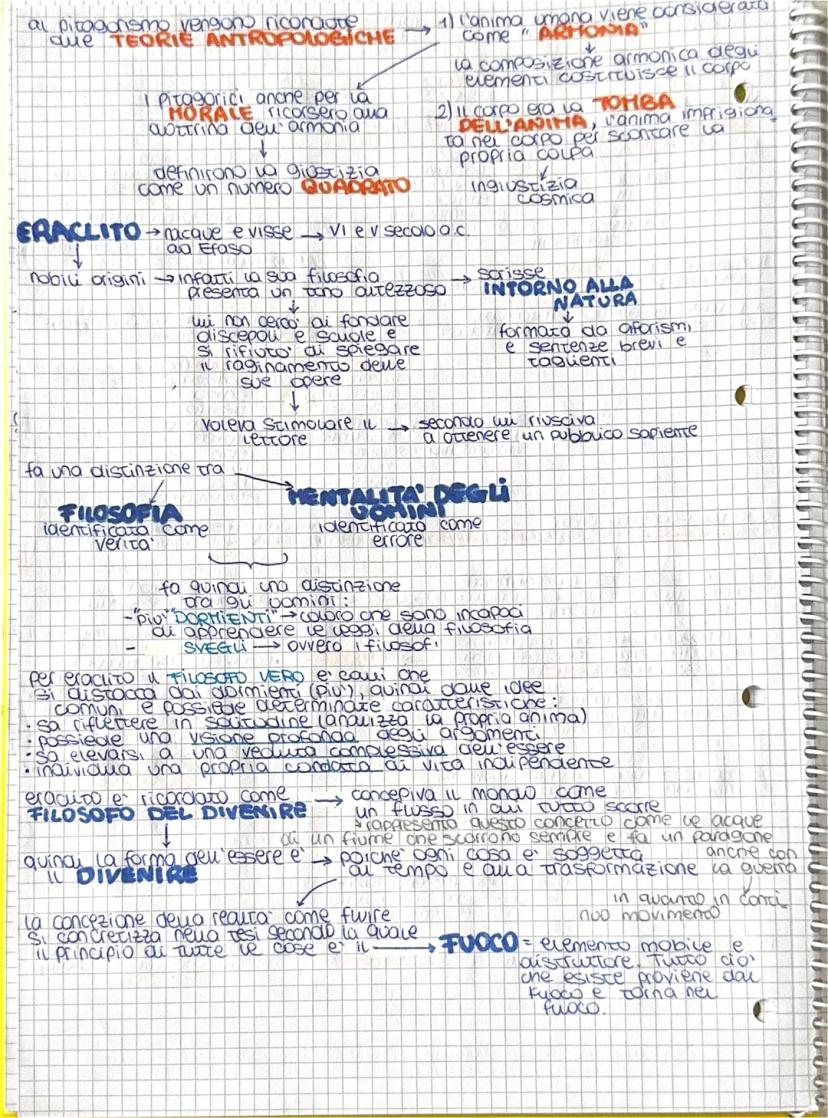 al pitagorismo vengono ricondotte
due TEORIE ANTROPOLOGICHE → 1) l'anima umana viene considerata
come "ARMONIA"
↓
la composizione armonica degli
elementi costituisce il corpo
i pitagorici anche per la
MORALE ricorsero alla
dottrina dell'armonia
↓
definirono la giustizia
come un numero QUADRATO
2) il corpo era la TOMBA
DELL'ANIMA, l'anima imprigiona
ta nel corpo per scontare la
propria colpa
↓
ingiustizia
cosmica
ERACLITO → nacque e visse → VI e V secolo a.C.
ad Efaso
↓
nobili origini → infatti la sua filosofia → scrisse
presenta un tono altezzoso INTORNO ALLA
NATURA
↓
lui non cercò di fondare
discepoli e scuole e
si rifiutò di spiegare
il raginamento delle
sue opere
↓
formata da aforismi
e sentenze brevi e
taglienti
voleva stimolare il → secondo lui riusciva
lettore a ottenere un pubblico sapiente
fa una distinzione tra
FILOSOFIA
identificata come
verità
MENTALITA' DEGLI
UOMINI
identificata come
errore
fa quindi una distinzione
tra gli uomini:
- "più" "DORMIENTI" → coloro che sono incapaci
di apprendere le leggi della filosofia
- SVEGLI → ovvero i filosofi
per eraclito il FILOSOFO VERO e' colui che
si distacca dai dormienti (più), quindi dalle idee
comuni e possiede determinate caratteristiche:
• sa riflettere in solitudine (analizza la propria anima)
• possiede una visione profonda degli argomenti
• sa elevarsi a una veduta complessiva dell'essere
• individua una propria condotta di vita indipendente
eraclito e' ricordato come → concepiva il mondo come
FILOSOFO DEL DIVENIRE un flusso in cui tutto scorre
↓
rappresentò questo concetto come le acque
di un fiume che scorrono sempre e fa un paragone
anche con
la guerra
in quanto in conti
nuo movimento
quindi la forma dell'essere e' → poiche' ogni cosa e' soggetta
il DIVENIRE al tempo e alla trasformazione
la concezione della realta' come fluire
si concretizza nella tesi secondo la quale
il principio di tutte le cose e' il → FUOCO = elemento mobile e
distruttore. Tutto cio'
che esiste proviene dal
fuoco e torna nel
fuoco.